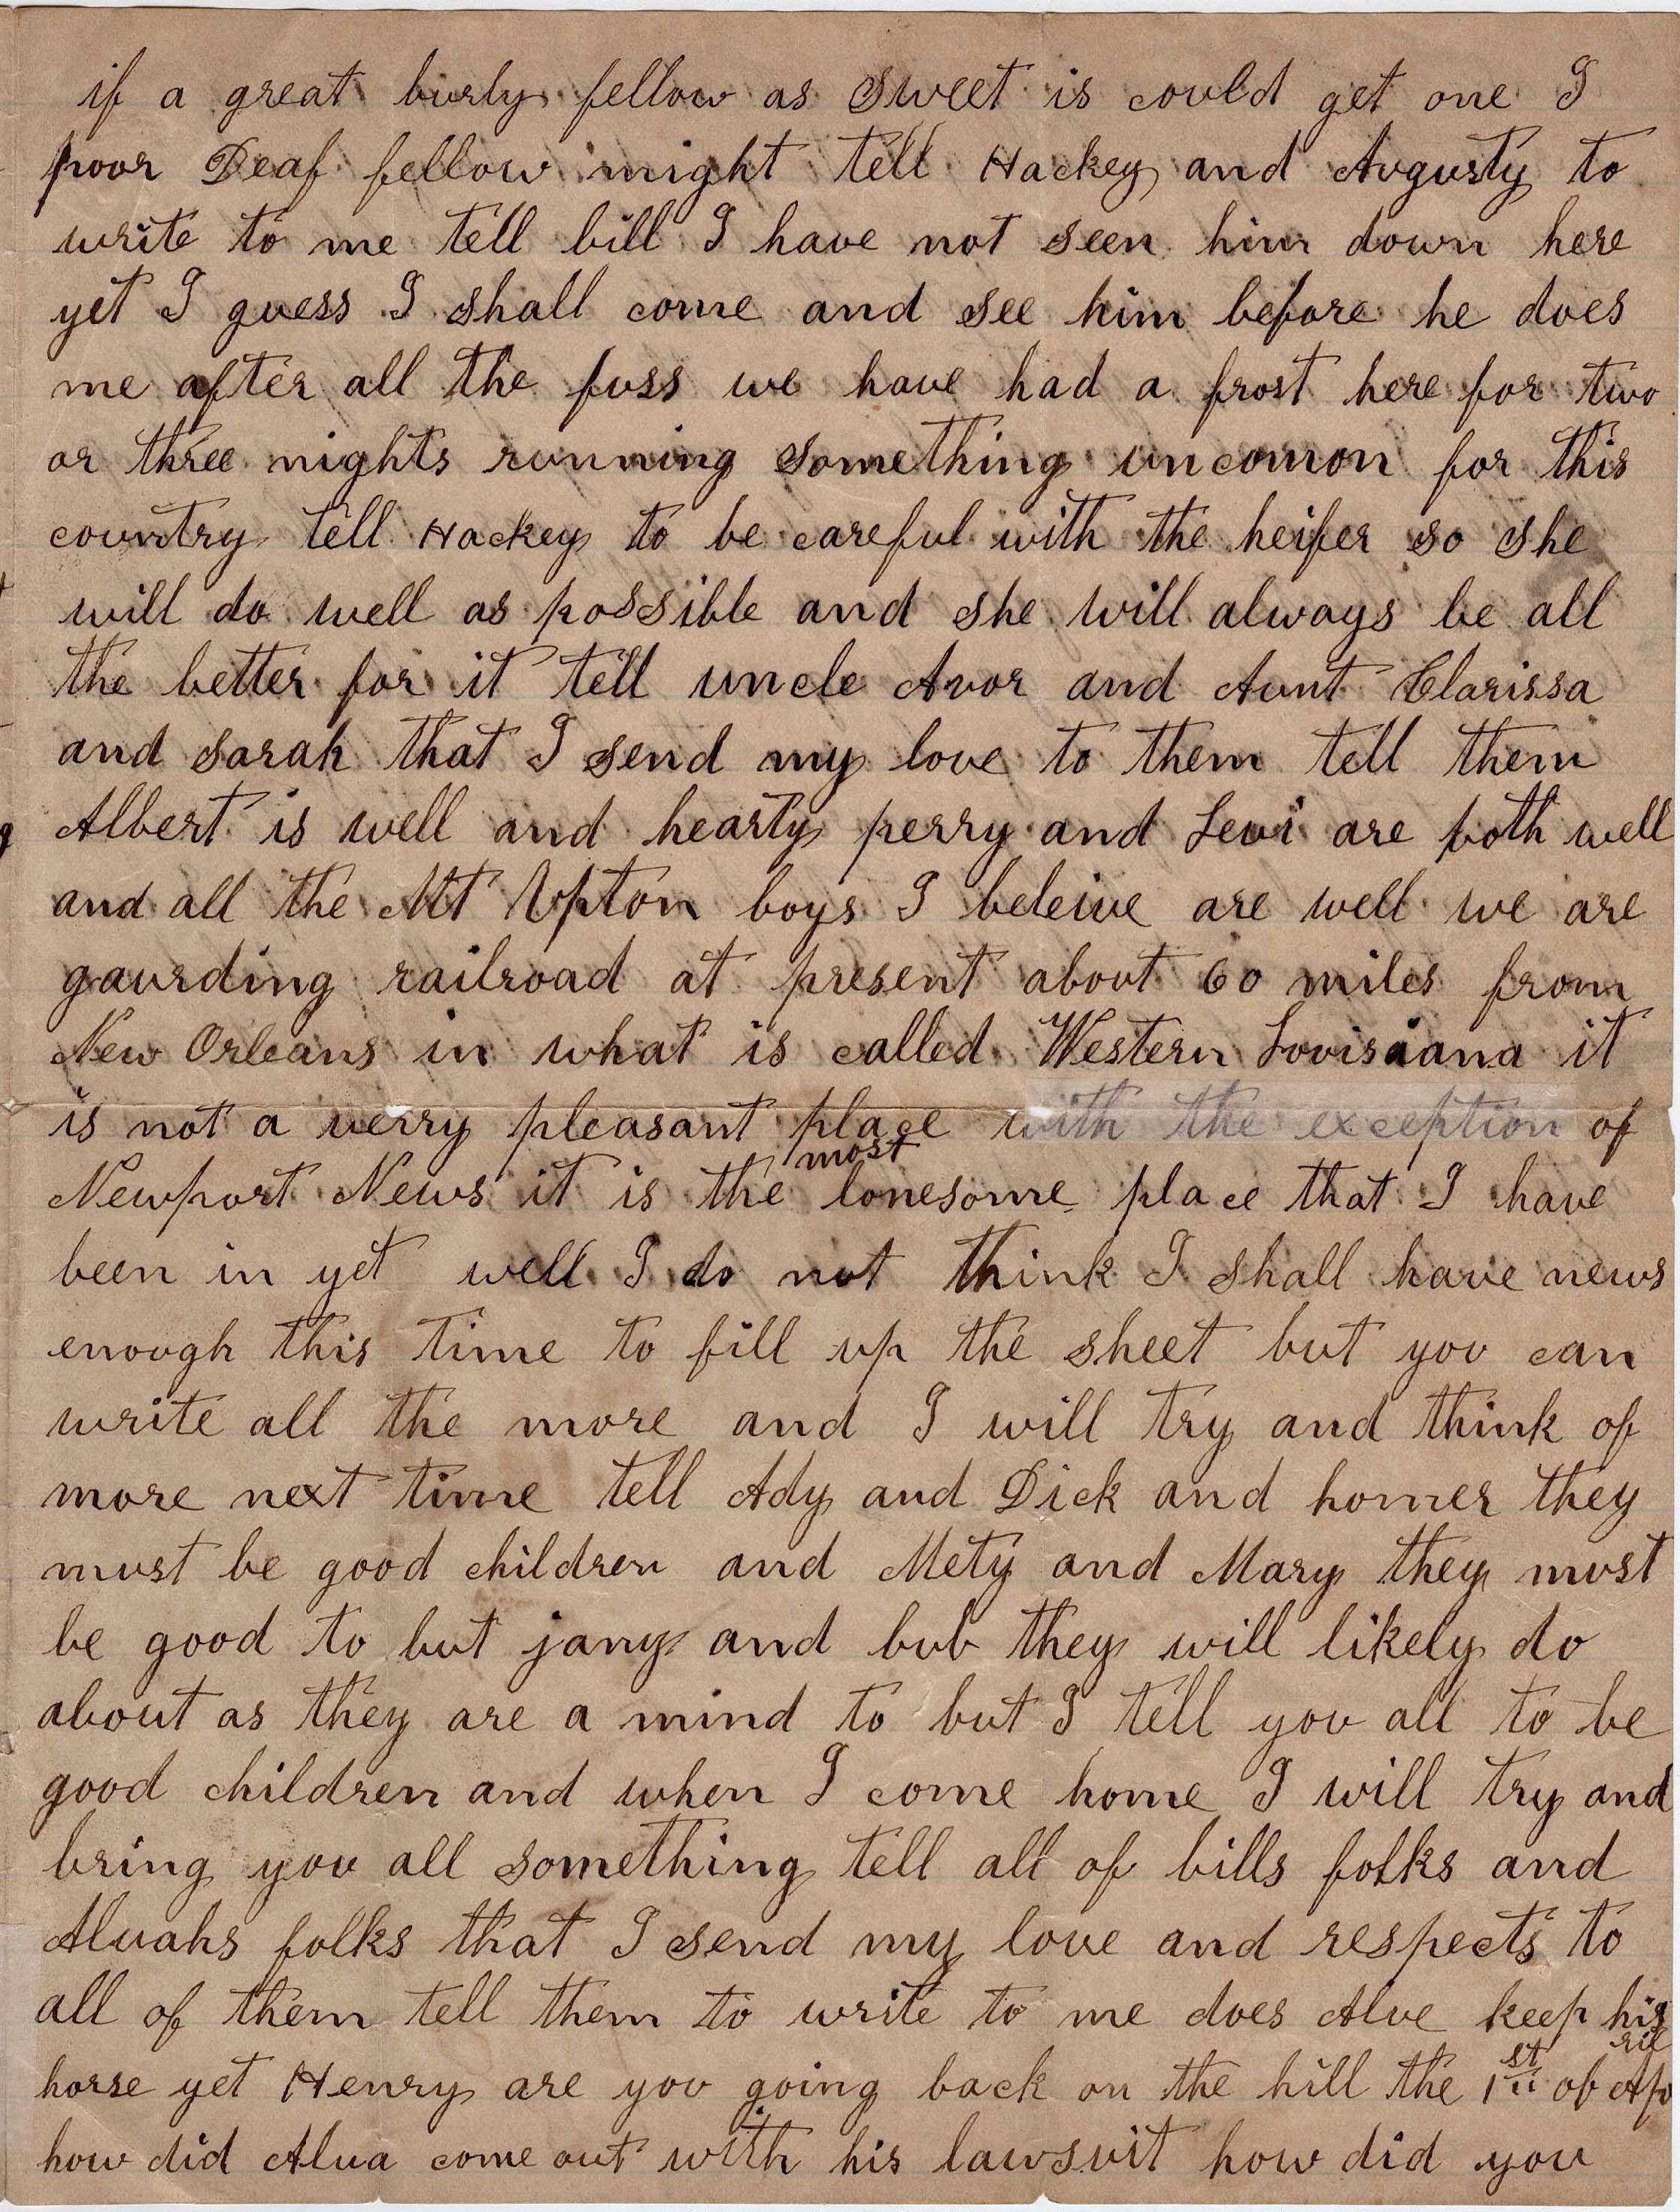 if a great burly fellow as Sweet is could get one I
poor Deaf fellow might tell Hackey and Avgusty to
write to me tell bill I have not seen him down here
yet I guess I shall come and see him before he does
me after all the fuss we have had a frost here for two
or three nights running something uncomon for this
country tell Hackey to be careful with the heifer so she
will do well as possible and she will always be all
the better for it tell uncle Avor and Aunt Clarissa
and Sarah that I send my love to them tell them
Albert is well and hearty perry and Levi are both well
and all the Mt Upton boys I beleive are well we are
gaurding railroad at present about 60 miles from
New Orleans in what is called Western Louisiana it
is not a verry pleasant place with the exception of
Newport News it is the most lonesome place that I have
been in yet well I do not think I shall have news
enough this time to fill up the sheet but you can
write all the more and I will try and think of
more next time tell Ady and Dick and homer they
must be good children and Mety and Mary they must
be good to but jany and bub they will likely do
about as they are a mind to but I tell you all to be
good children and when I come home I will try and
bring you all something tell all of bills folks and
Alvahs folks that I send my love and respects to
all of them tell them to write to me does Alve keep his
horse yet Henry are you going back on the hill the 1st of Aprie
how did Alva come out with his lawsuit how did you